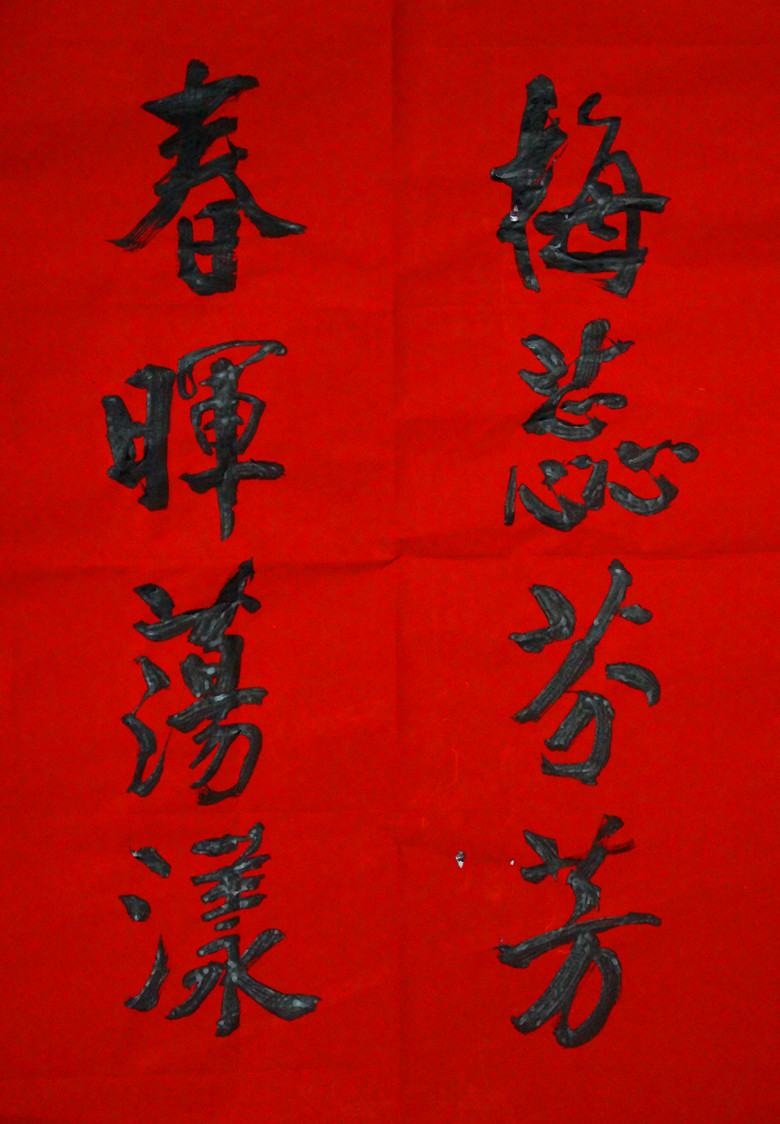 梅蕊芬芳
春暉蕩漾